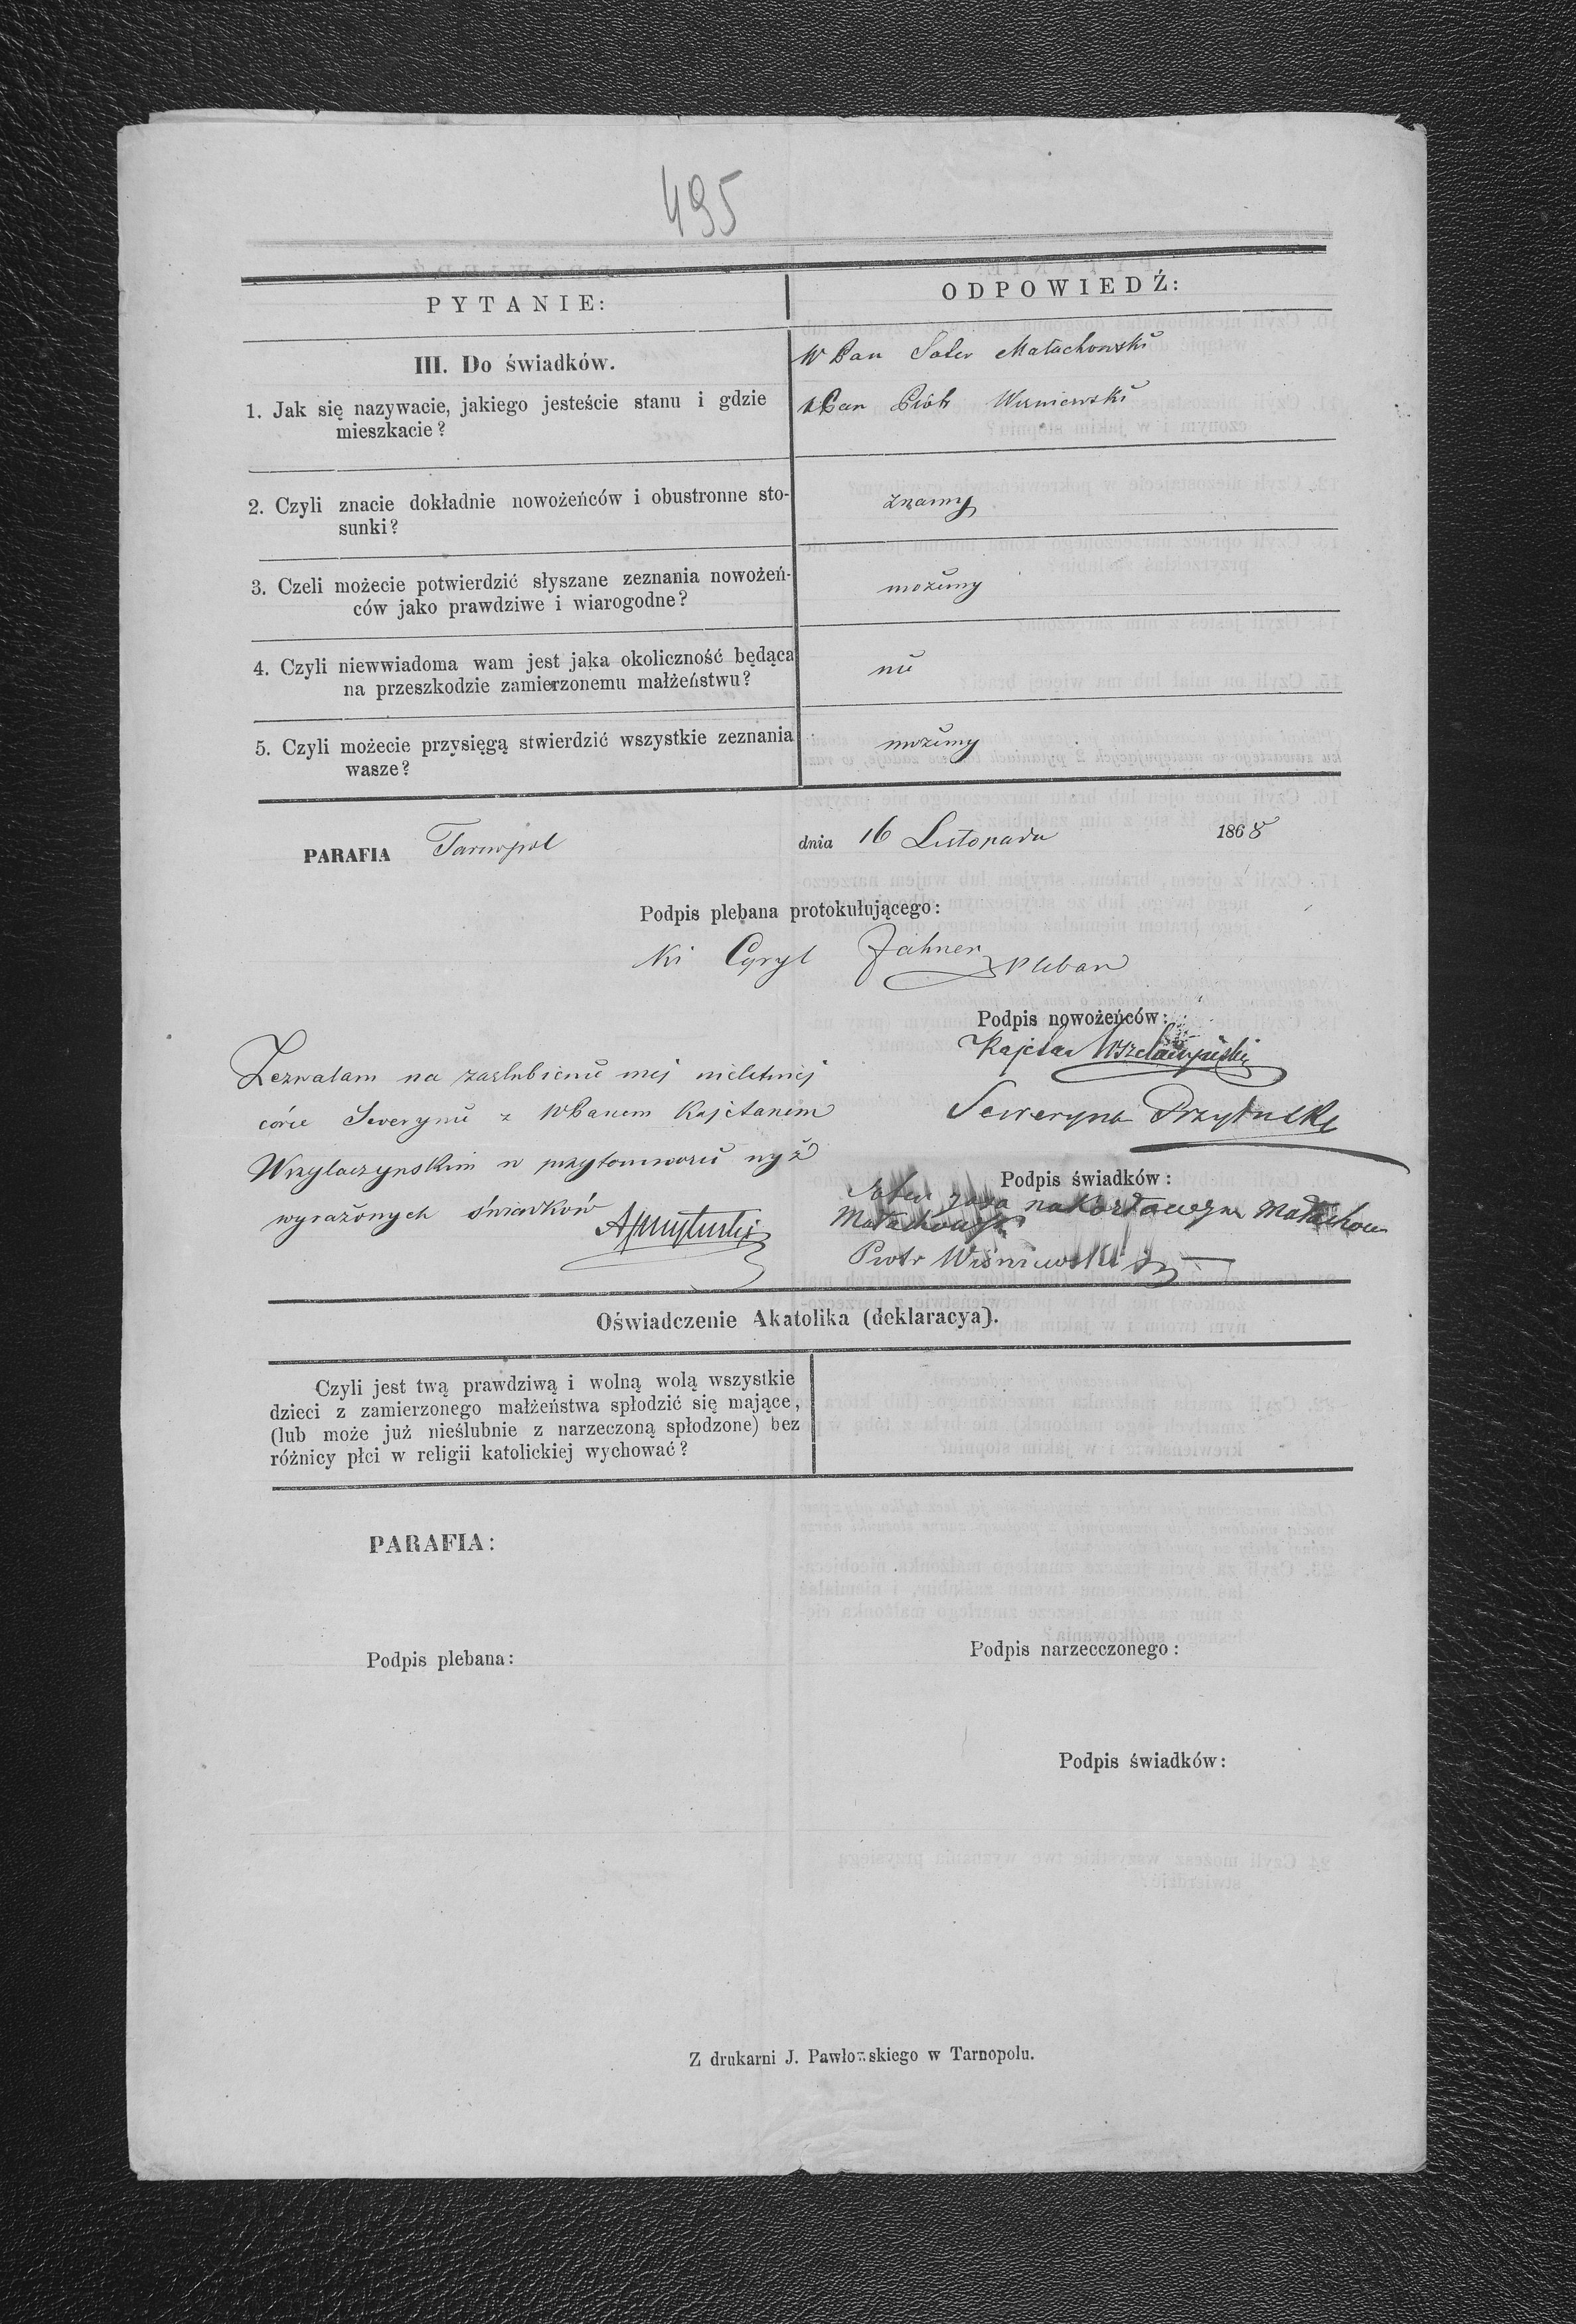 495
PYTANIE:
ODPOWIEDŹ:
III. Do świadków.
W Pan Soter Małachowski
1. Jak się nazywacie, jakiego jesteście stanu i gdzie
mieszkacie?
WPan Piotr Wisniewski
2. Czyli znacie dokładnie nowożeńców i obustronne sto-
sunki?
znamy
3. Czeli możecie potwierdzić słyszane zeznania nowożeń-
ców jako prawdziwe i wiarogodne?
możemy
4. Czyli niewwiadoma wam jest jaka okoliczność będąca
na przeszkodzie zamierzonemu małżeństwu?
nie
5. Czyli możecie przysięgą stwierdzić wszystkie zeznania
wasze?
możemy
PARAFIA Tarnopol dnia 16 Listopada 1868
Podpis plebana protokułującego:
Cyryl Jahner pleban
Podpis nowożeńców:
Kajetan
Seweryna
Zezwalam na zaslubienie mej nieletniej
córce Severynie z WPanem Kajetanem
w przytomności wyż
wyrażonych świadków
Podpis świadków:
Soter
Małachowski
Piotr Wiśniewski
Oświadczenie Akatolika (deklaracya).
Czyli jest twą prawdziwą i wolną wolą wszystkie
dzieci z zamierzonego małżeństwa spłodzić się mające,
(lub może już nieślubnie z narzeczoną spłodzone) bez
różnicy płci w religii katolickiej wychować?
PARAFIA:
Podpis plebana:
Podpis narzecczonego:
Podpis świadków:
Z drukarni J. Pawłowskiego w Tarnopolu.